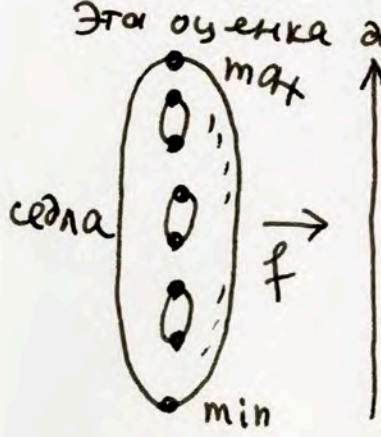 Эта оценка
max
седла
f
min